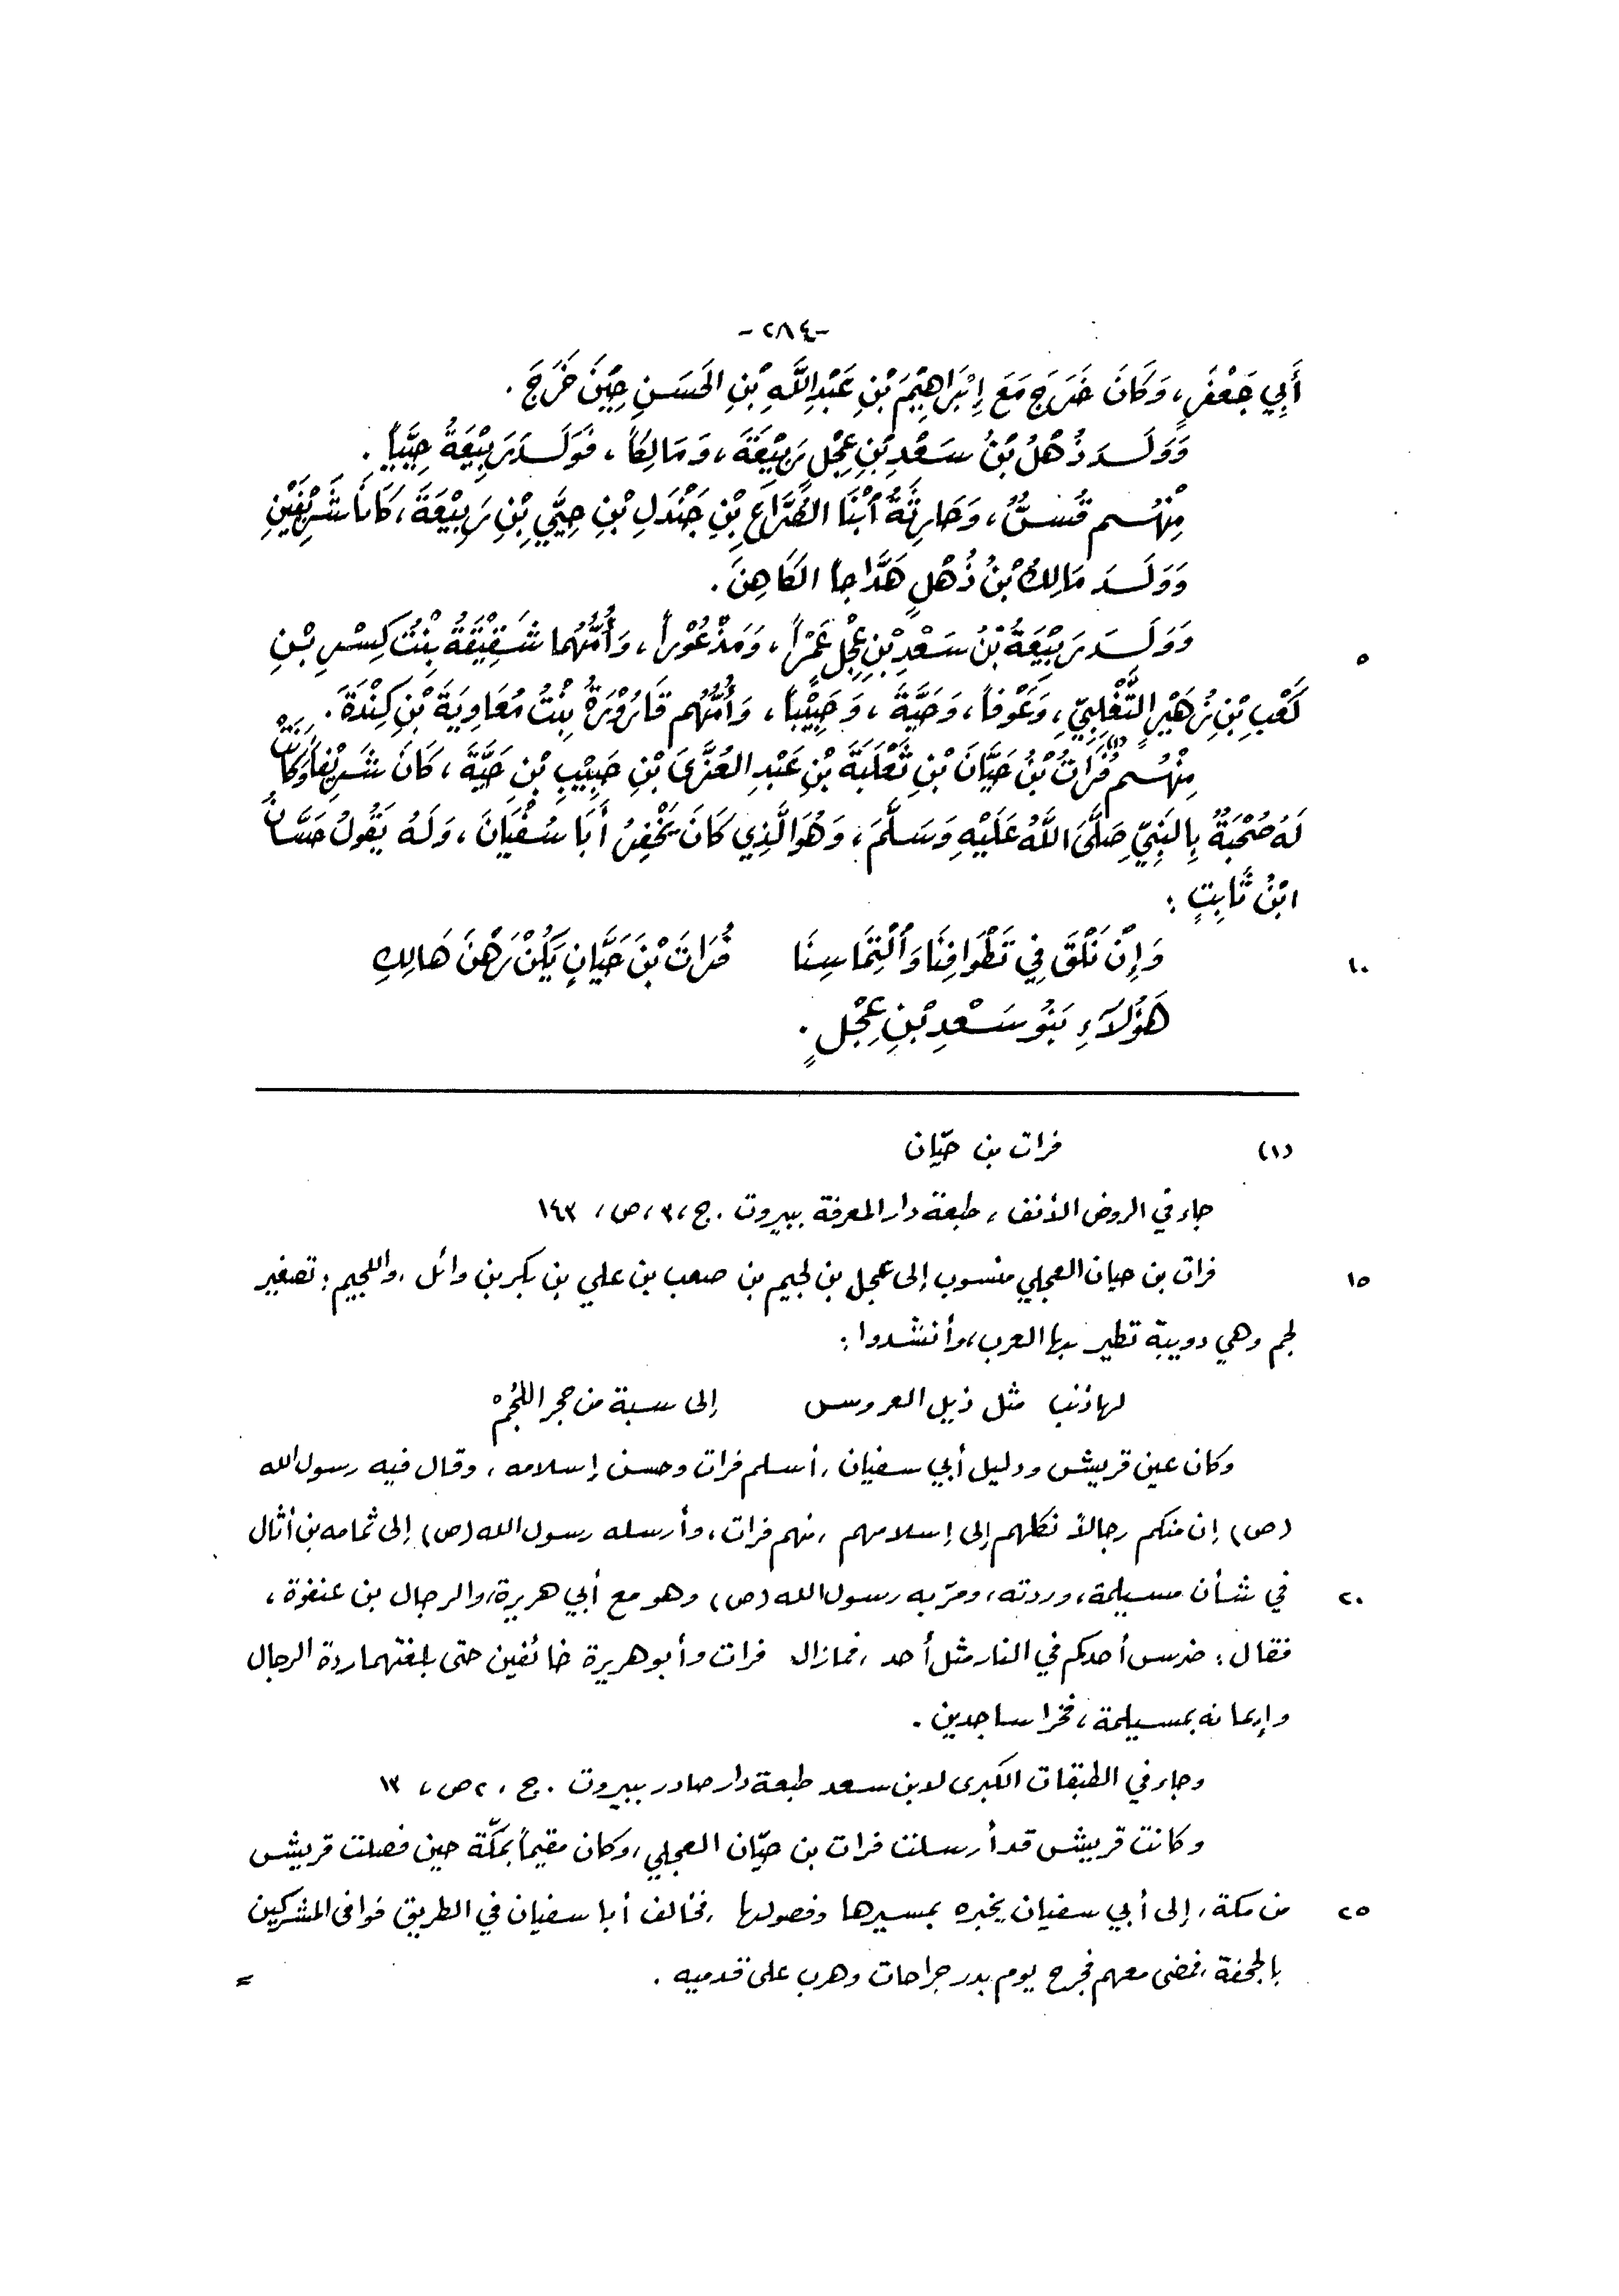 -٢٨٤-
أَبِي جَعْفَرٍ، وَكَانَ خَرَجَ مَعَ إِبْرَاهِيْمَ بْنِ عَبْدِ اللَّهِ بْنِ الحَسَنِ حِيْنَ خَرَجَ .
وَوَلَـدَ ذُهْلُ بْنُ سَعْدِ بْنِ عِجْلٍ رَبِيْعَةَ، وَمَالِكاً، فَوَلَـدَ رَبِيْعَةُ حِيَيّاً .
مِنْهُـم قُسٌّ، وَحَارِثَةُ ٱبْنَا الضَّرَّاعِ بْنِ جَنْدَلِ بْنِ حِيَيِّ بْنِ رَبِيْعَةَ، كَانَا شَرِيْفَيْنِ
وَوَلَـدَ مَالِكُ بْنُ ذُهْلٍ هَدَّاجاً الكَاهِنَ .
وَوَلَـدَ رَبِيْعَةُ بْنُ سَعْدِ بْنِ عِجْلٍ عَمْراً، وَمَذْعُوْراً، وَأُمُّهُما شَقِيْقَةُ بِنْتُ كِسْرِ بْنِ
٥
كَعْبِ بْنِ زُهَيْرٍ التَّغْلِبِيِّ، وَعَوْفاً، وَحَيَّةَ، وَحَبِيْباً، وَأُمُّهُم قَارُوْرَةُ بِنْتُ مُعَاوِيَةَ بْنِ كِنْدَةَ .
مِنْهُـم فُرَاتُ(١) بْنُ حَيَّانَ بْنِ ثَعْلَبَةَ بْنِ عَبْدِ العُزَّى بْنِ حَبِيْبِ بْنِ حَيَّةَ، كَانَ شَرِيْفاً وَكَانَتْ
لَهُ صُحْبَةٌ بِالنَّبِيِّ صَلَّى اللَّهُ عَلَيْهِ وَسَلَّمَ، وَهُوَ الَّذِي كَانَ يَخْفِرُ أَبَا سُفْيَانَ، وَلَهُ يَقُولُ حَسَّانُ
ابْنُ ثَابِتٍ :
وَإِنْ نَلْقَ فِي تَطْوَافِنَا وَٱلْتِمَاسِنَا فُرَاتَ بْنَ حَيَّانٍ يَكُنْ رَهْنَ هَالِكِ
١٠
هَؤُلَاءِ بَنُو سَعْدِ بْنِ عِجْلٍ .
(١) فرات بن حيّان
جاء في الروض الأنف، طبعة دار المعرفة ببيروت . ج، ٣، ص، ١٤٣
فرات بن حيان العجلي منسوب إلى عجل بن لجيم بن صعب بن علي بن بكر بن وائل، واللجيم: تصغير
١٥
لجم وهي دويبة تطير بها العرب، وأنشدوا :
لها ذنب مثل ذيل العروس إلى سبة من حجر اللُجُمْ
وكان عين قريش ودليل أبي سفيان، أسلم فرات وحسن إسلامه، وقال فيه رسول الله
(ص) إن منكم رجالاً نكلهم إلى إسلامهم، منهم فرات، وأرسله رسول الله (ص) إلى ثمامه بن أثال
في شأن مسيلمة، وردته، ومرّ به رسول الله (ص) وهو مع أبي هريرة، والرجال بن عنفوة،
٢٠
فقال: ضرس أحدكم في النار مثل أحد، فمازال فرات وأبو هريرة خائفين حتى بلغتهما ردة الرجال
وإيمانه بمسيلمة، فخرا ساجدين .
وجاء في الطبقات الكبرى لابن سعد طبعة دار صادر ببيروت . ج، ٢ ص، ١٣
وكانت قريش قد أرسلت فرات بن حيّان العجلي، وكان مقيماً بمكّة حين فصلت قريش
من مكة، إلى أبي سفيان يخبره بمسيرها وفصولها، فخالف أبا سفيان في الطريق فوافى المشركين
٢٥
بالجحفة، فمضى معهم فجرح يوم بدر جراحات وهرب على قدميه .
=